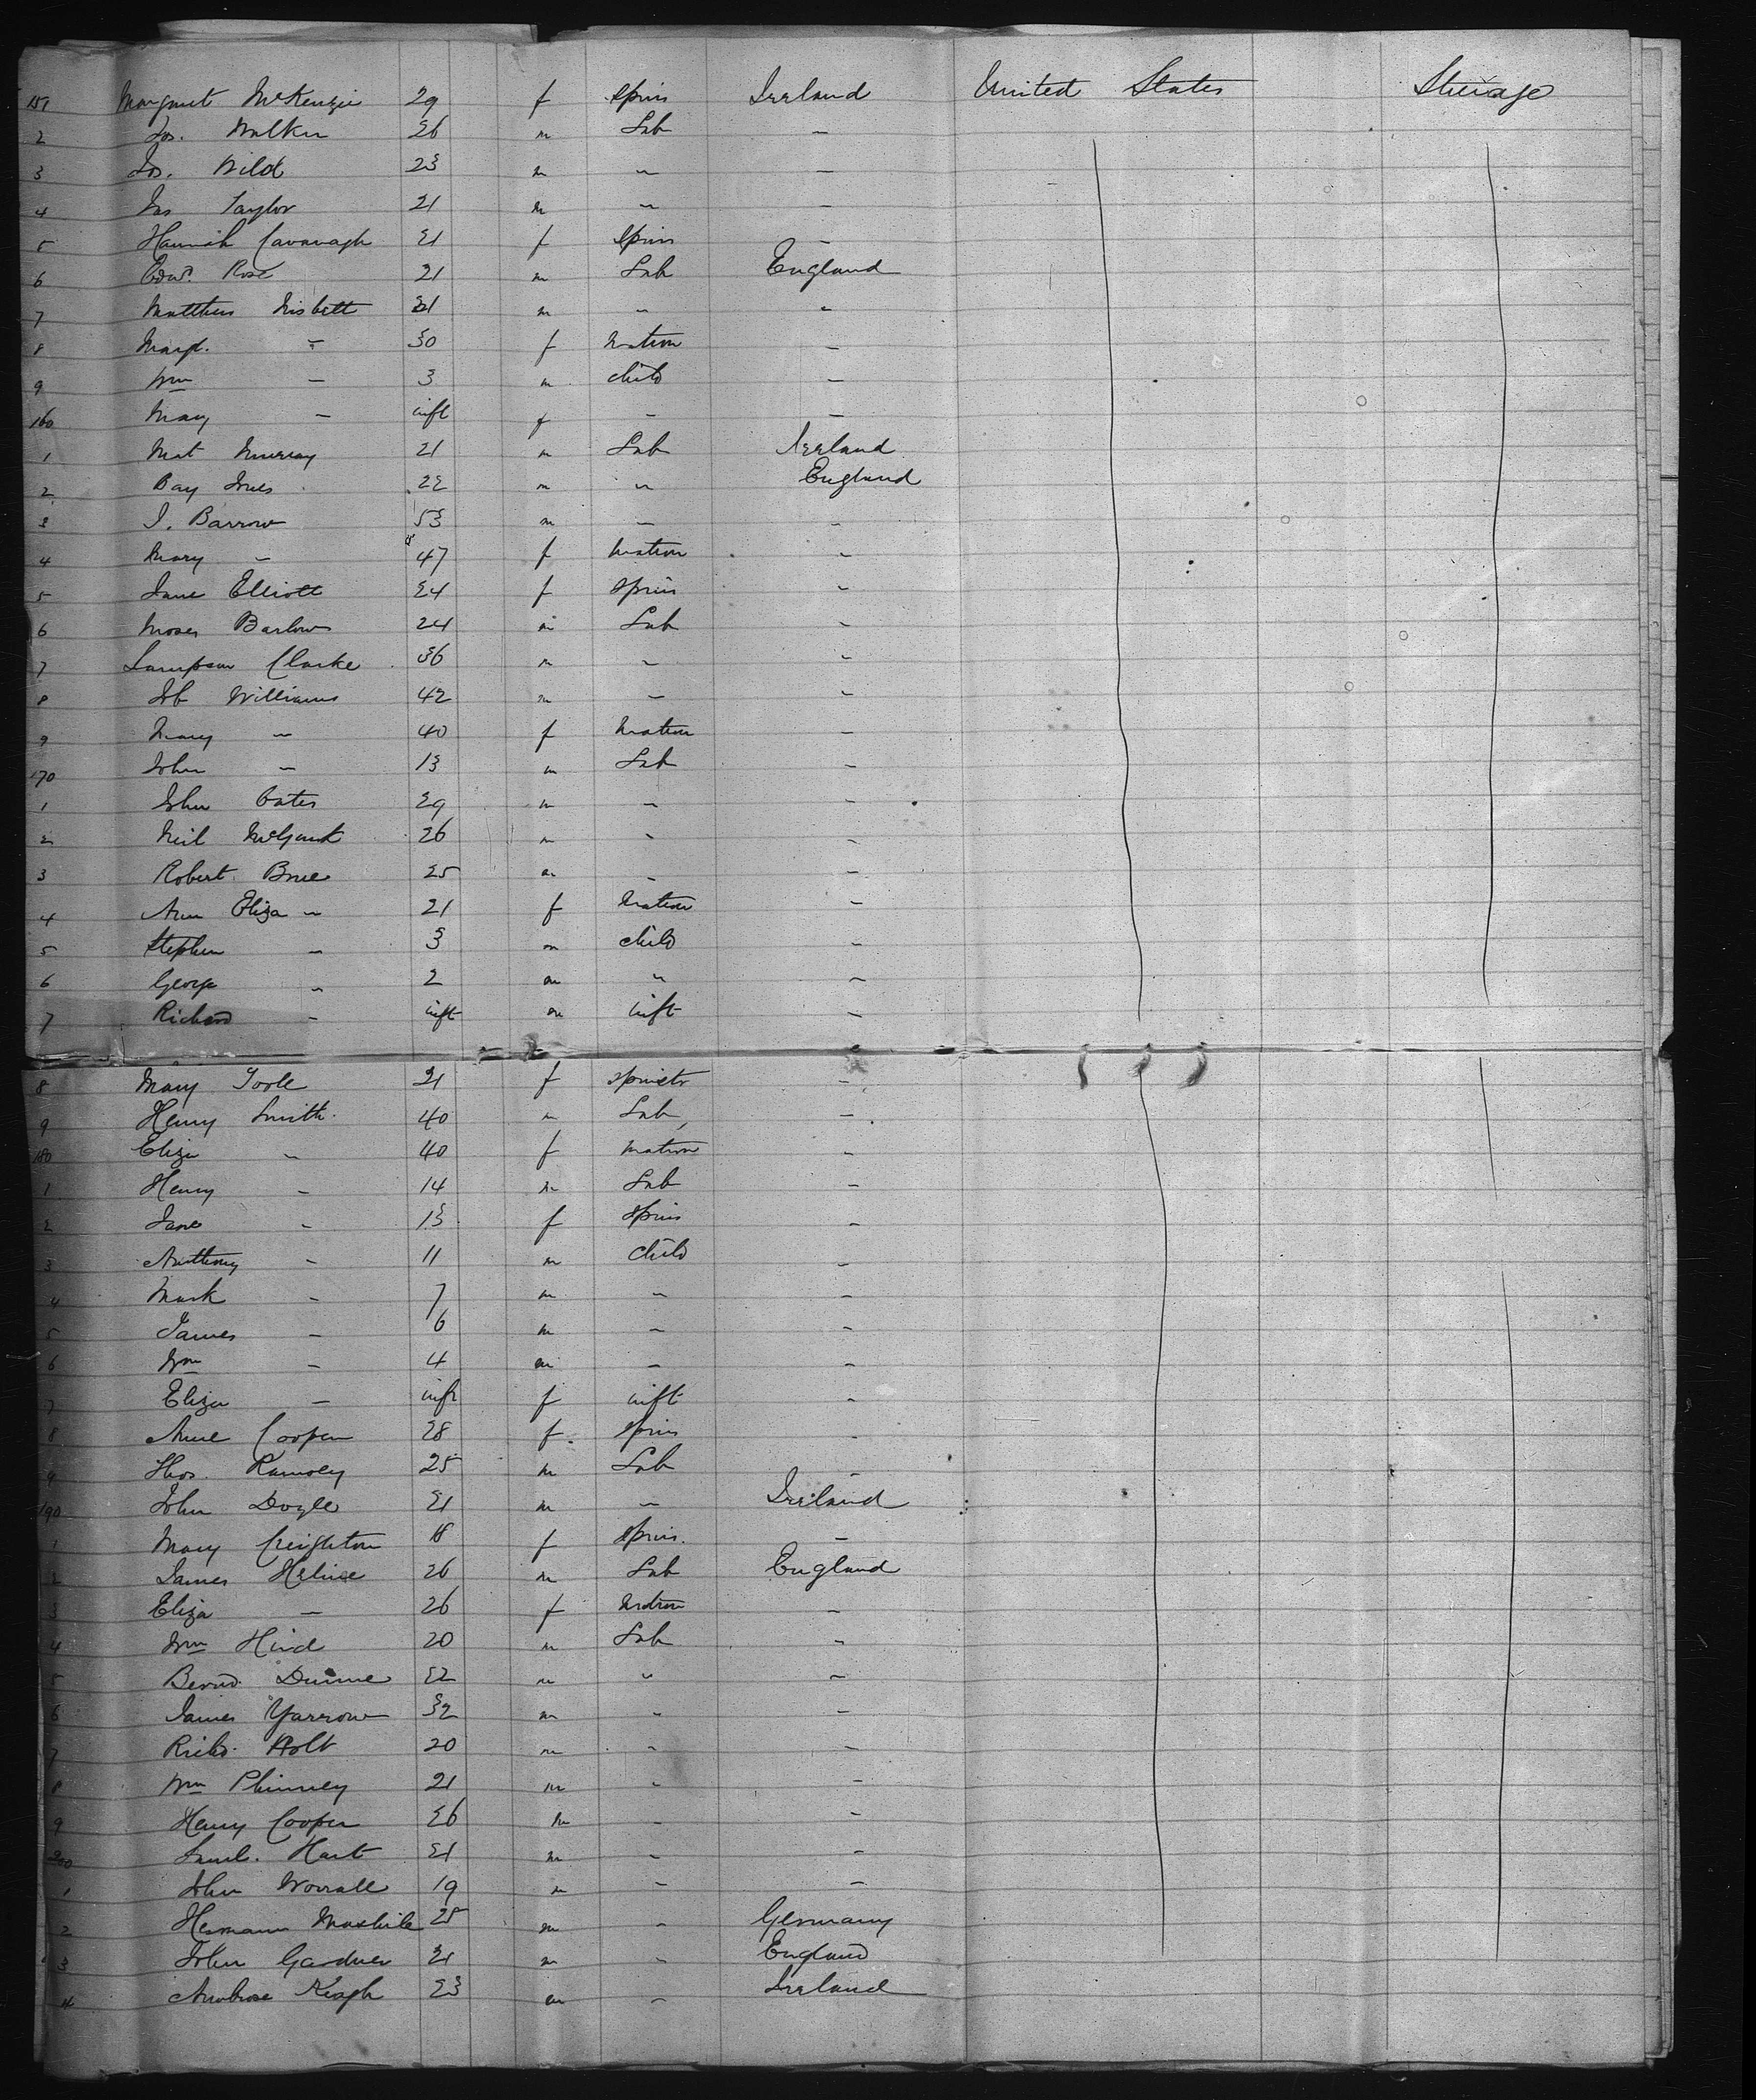 151 Margaret McKenzie 29 f Spins Ireland United States Steerage
2 Jos. Walker 26 m Lab —
3 Jos. Wild 23 m " —
4 Jas Taylor 21 m " —
5 Hannah Cavanagh 21 f Spins —
6 Edwd. Rose 21 m Lab England
7 Matthew Nisbett 21 m " "
8 Margt. — 30 f Matron —
9 Wm — 3 m child —
160 Mary — inft f — —
1 Mat Murray 21 m Lab Ireland
2 22 m " England
3 J. Barrow 53 m — —
4 Mary — 47 f Matron —
5 Jane Elliott 24 f Spins —
6 Moses Barlow 24 m Lab —
7 Sampson Clarke 36 m — —
8 Williams 42 m — —
9 Mary — 40 f Matron —
170 John — 13 m Lab —
1 John Oates 29 m — —
2 Neil 26 m — —
3 Robert 25 m — —
4 Ann Eliza " 21 f Matron —
5 Stephen " 3 m child —
6 George " 2 m " —
7 Richard — inft m inft —
8 Mary Toole 21 f Spinstr —
9 Henry Smith 40 m Lab —
180 Eliza " 40 f Matron —
1 Henry — 14 m Lab —
2 Jane — 13 f Spins —
3 Anthony — 11 m child —
4 Mark — 7 m " —
5 James — 6 m — —
6 Wm — 4 m — —
7 Eliza — inft f inft —
8 Anne Cooper 28 f Spins —
9 Thos. Ramsey 25 m Lab —
190 John Doyle 21 m — Ireland
1 Mary Creighton 18 f Spins. —
2 James 26 m Lab England
3 Eliza — 26 f Matron —
4 Wm Hind 20 m Lab —
5 Bernd. Dunne 22 m " —
6 James Yarrow 32 m — —
7 Richd. Holt 20 m — —
8 Wm Phinney 21 m — —
9 Henry Cooper 26 m — —
200 Saml. Hart 21 m — —
1 John Worrall 19 m — —
2 Hermann 25 m — Germany
3 John Gardner 21 m — England
4 Ambrose Keogh 23 m — Ireland